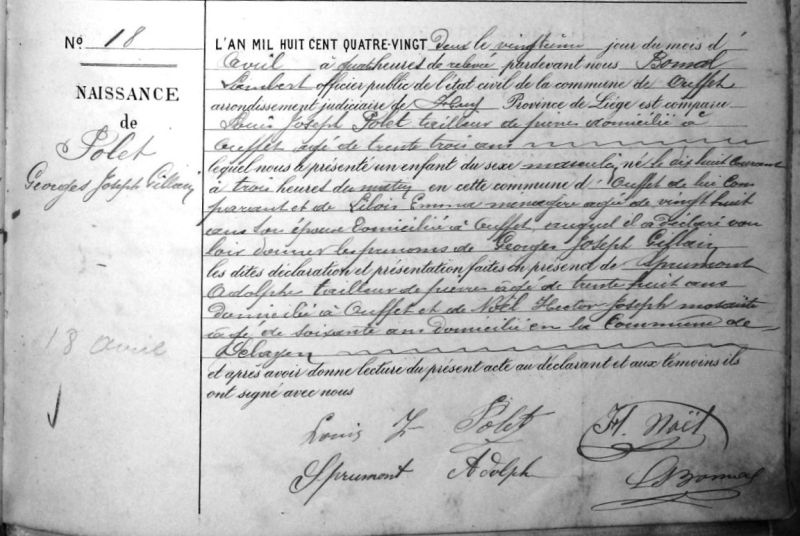 N° 18
NAISSANCE
de
Polet
Georges Joseph Gillain
18 avril
L'AN MIL HUIT CENT QUATRE-VINGT Deux le vingtième jour du mois d'
Avril à quatre heures de relevée pardevant nous Bomal
Lambert officier public de l'état civil de la commune de Ouffet
arrondissement judiciaire de Huy Province de Liége est comparu
Louis Joseph Polet tailleur de pierres domicilié à
Ouffet âgé de trente trois ans
lequel nous a présenté un enfant du sexe masculin, né le dix huit courant
à trois heures du matin en cette commune d'Ouffet de lui Com
parant et de Lilois Emma menagère agée de vingt huit
ans son épouse Domiciliée à Ouffet, auquel il a déclaré vou
loir donner les prenoms de Georges Joseph Gillain
les dites déclaration et présentation faites en présence de Sprumont
Adolphe tailleur de pierres âgé de trente huit ans
domicilié à Ouffet et de Noël Hector Joseph
âgé de soixante ans domicilié en la Commune de

et après avoir donné lecture du présent acte au déclarant et aux témoins ils
ont signé avec nous
Louis J Polet H. Noël
Sprumont Adolph LBomal